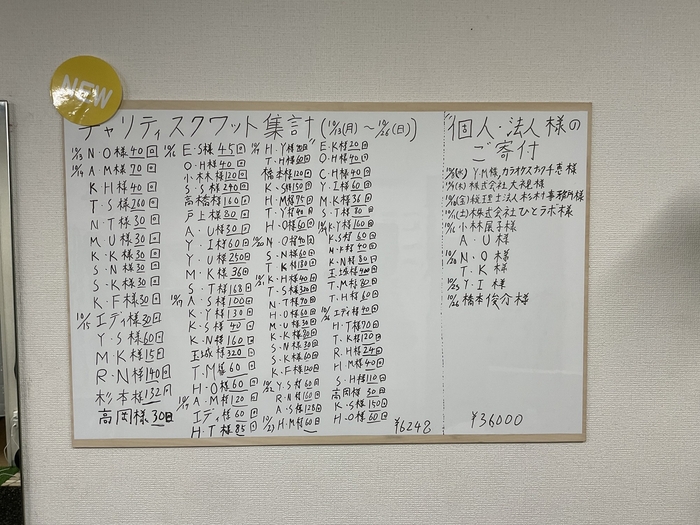 NEW
チャリティスクワット集計(10/13(月)～10/26(日))
10/13 N・O様40回
10/14 A・M様70回
K・H様40回
T・S様260回
N・T様30回
M・U様30回
K・K様30回
S・N様30回
S・K様30回
K・F様30回
10/15 エディ様30回
Y・S様60回
M・K様15回
R・N様140回
杉本様132回
高岡様30回
10/16 E・S様45回
O・H様40回
小林様120回
S・S様240回
高橋様160回
戸上様80回
A・U様30回
Y・I様60回
Y・U様250回
M・K様36回
S・T様168回
10/17 A・S様100回
K・Y様130回
K・S様40回
K・N様160回
玉城様320回
T・M様60回
H・O様60回
10/19 A・M様120回
エディ様60回
H・T様85回
T・H様60回
橋本様120回
K・S様150回
H・M様75回
T・Y様40回
H・O様60回
10/20 N・O様40回
S・N様60回
T・K様180回
10/21 K・H様40回
T・S様320回
N・T様70回
H・O様60回
M・U様30回
K・K様80回
S・N様30回
S・K様60回
10/22 Y・S様60回
R・N様160回
A・S様128回
10/23 H・M様60回
E・K様20回
O・H様40回
C・H様40回
Y・I様60回
M・K様36回
S・T様80回
K・Y様160回
K・S様60回
M・K様40回
K・N様80回
玉城様400回
T・M様80回
T・H様60回
10/26 エディ様40回
H・T様70回
T・K様120回
R・H様24回
H・M様40回
S・H様110回
高岡様30回
K・S様150回
H・O様60回
¥6248
個人・法人様の
ご寄付
Y・M様,カラオケスナック千恵様
(木)株式会社大視様
(金)税理士法人杉村事務所様
(土)株式会社ひとラボ様
小林展子様
A・U様
10/20 N・O様
T・K様
10/23 Y・I様
10/26 橋本俊介様
¥36000